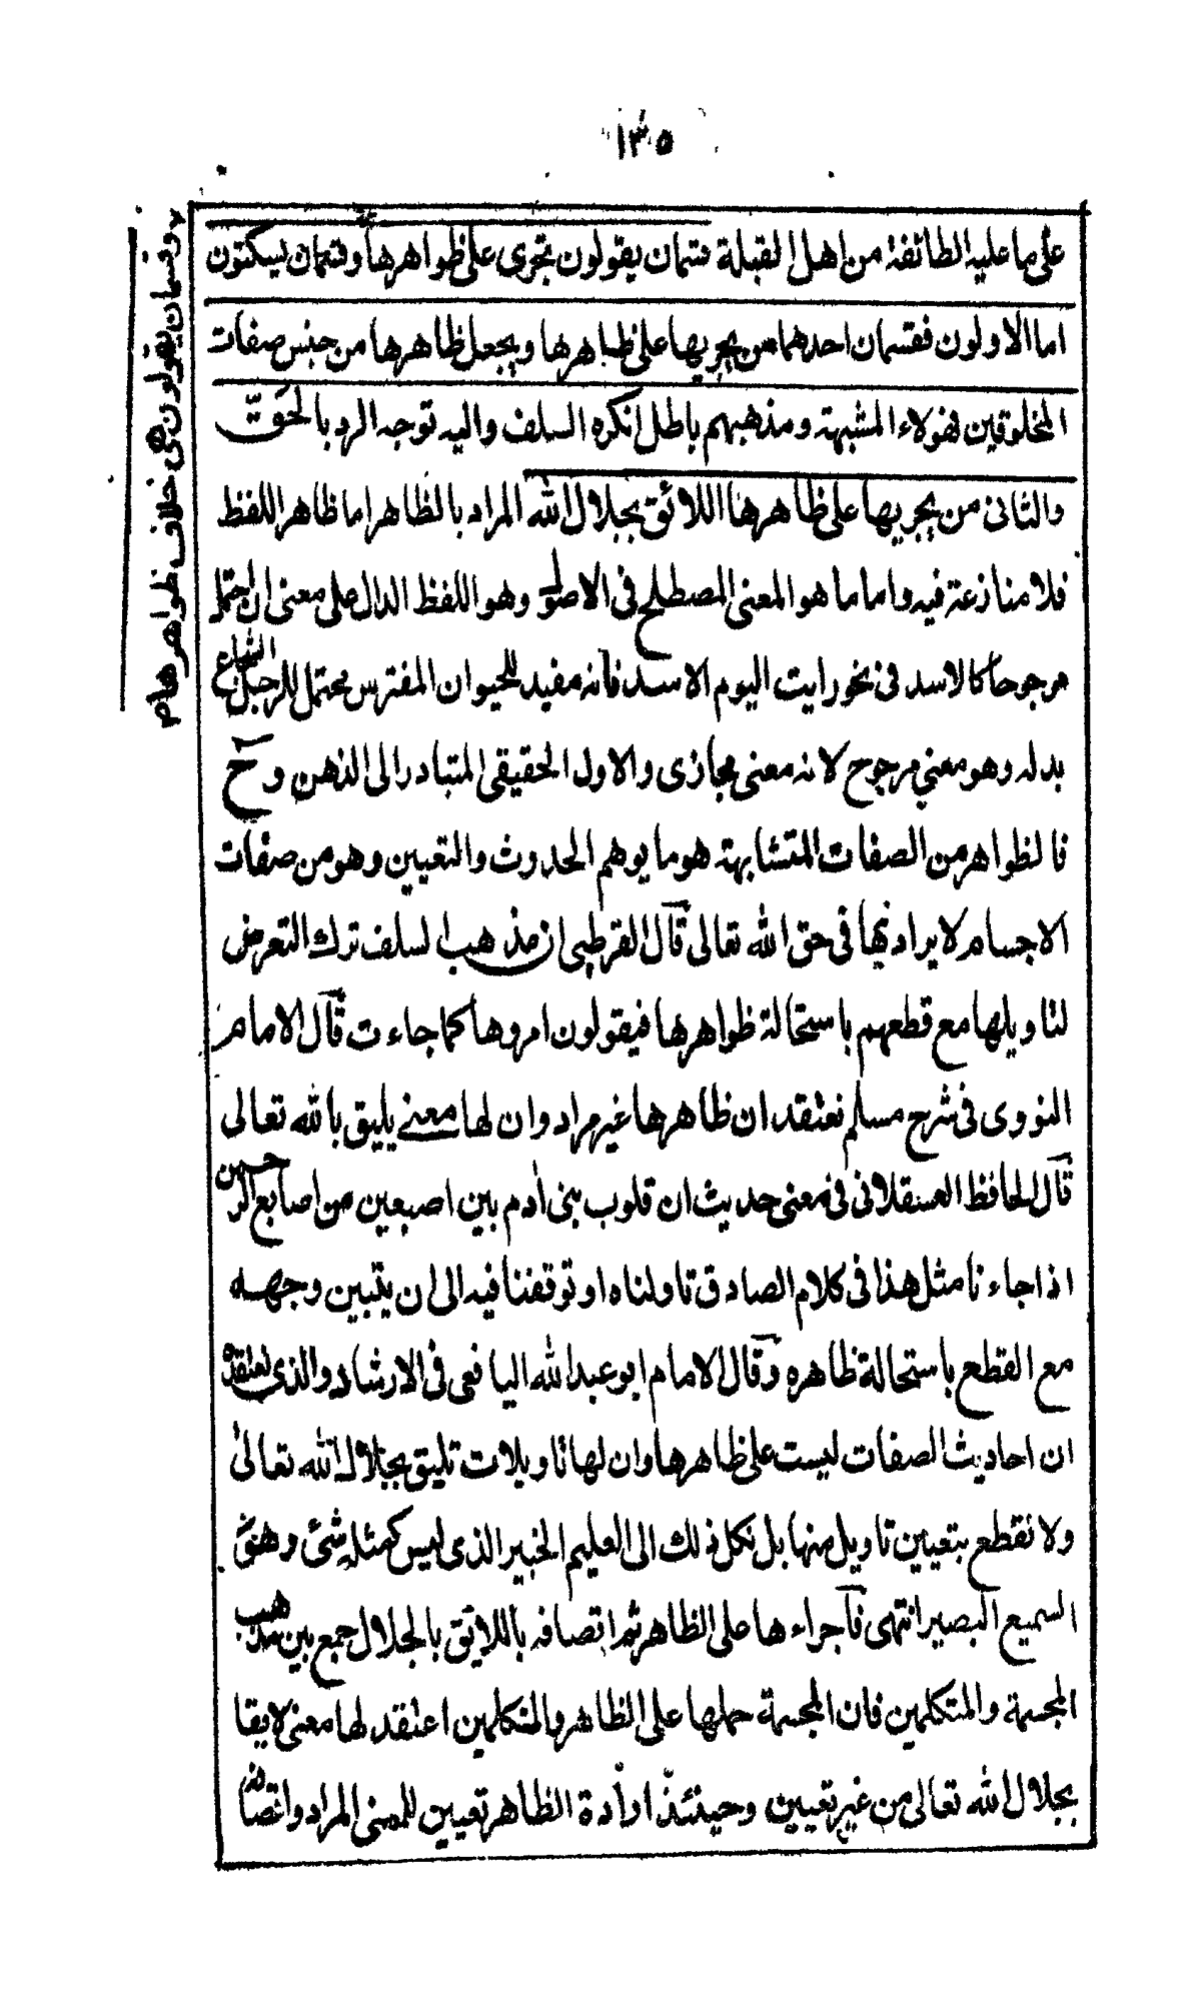 ١٣٥
على ما عليه الطائفة من اهل القبلة قسمان يقولون تجرى على ظواهرها وقسمان يسكتون
اما الاولون فقسمان احدهما من يجريها على ظاهرها ويجعل ظاهرها من جنس صفات
المخلوقين فهولاء المشبهة ومذهبهم باطل انكره السلف واليه توجه الرد بالحق
والثانى من يجريها على ظاهرها اللائق بجلال الله المراد بالظاهر اما ظاهر اللفظ
فلا منازعة فيه واما ما هو المعنى المصطلح فى الاصول وهو اللفظ الدال على معنى ان احتمل
مرجوحا كالاسد فى نحو رايت اليوم الاسد فانه مفيد للحيوان المفترس محتمل للرجل الشجاع
بدله وهو معنى مرجوح لانه معنى مجازى والاول الحقيقى المتبادر الى الذهن وح
فالظواهر من الصفات المتشابهة هو ما يوهم الحدوث والتعيين وهو من صفات
الاجسام لا يراد بها فى حق الله تعالى قال القرطبى ان مذهب السلف ترك التعرض
لتاويلها مع قطعهم باستحالة ظواهرها فيقولون امروها كما جاءت قال الامام
النووى فى شرح مسلم نعتقد ان ظاهرها غير مراد وان لها معنى يليق بالله تعالى
قال الحافظ العسقلانى فى معنى حديث ان قلوب بنى ادم بين اصبعين من اصابع الرحمن
اذا جاءنا مثل هذا فى كلام الصادق تاولناه او توقفنا فيه الى ان يتبين وجهه
مع القطع باستحالة ظاهره وقال الامام ابو عبد الله اليافعى فى الارشاد والذى نعتقده
ان احاديث الصفات ليست على ظاهرها وان لها تاويلات تليق بجلال الله تعالى
ولا نقطع بتعيين تاويل منها بل نكل ذلك الى العليم الخبير الذى ليس كمثله شئ وهو
السميع البصير انتهى فاجراءها على الظاهر ثم اتصافه باللائق بالجلال جمع بين مذهب
المجسمة والمتكلمين فان المجسمة حملها على الظاهر والمتكلمين اعتقد لها معنى لايقا
بجلال الله تعالى من غير تعيين وحينئذ ارادة الظاهر تعيين للمعنى المراد واتصافه
وقسمان يقولون هى خلاف ظواهرها م